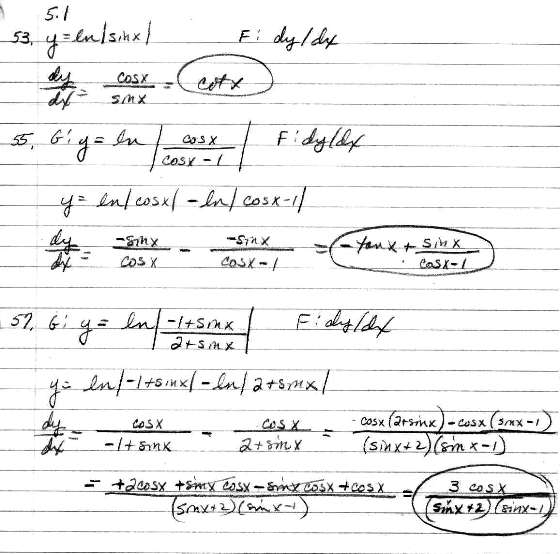 5.1
53. y = ln|sinx| F: dy/dx
dy/dx = cosx/sinx = cotx
55. G: y = ln|cosx/(cosx-1)| F: dy/dx
y = ln|cosx| - ln|cosx-1|
dy/dx = -sinx/cosx - -sinx/(cosx-1) = -tanx + sinx/(cosx-1)
57. G: y = ln|(-1+sinx)/(2+sinx)| F: dy/dx
y = ln|-1+sinx| - ln|2+sinx|
dy/dx = cosx/(-1+sinx) - cosx/(2+sinx) = cosx(2+sinx)-cosx(sinx-1)/(sinx+2)(sinx-1)
= +2cosx+sinxcosx-sinxcosx+cosx/(sinx+2)(sinx-1) = 3cosx/(sinx+2)(sinx-1)